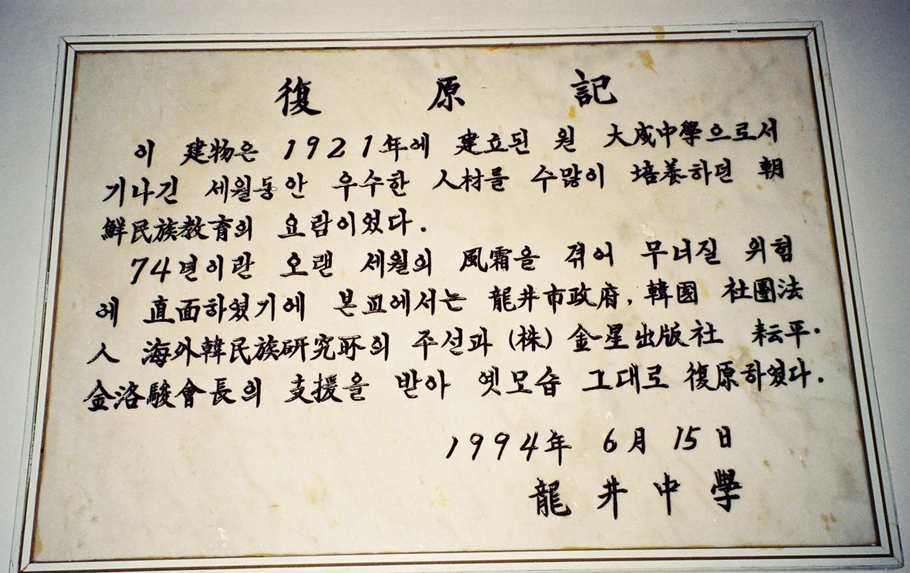 復原記
이 建物은 1921年에 建立된 원 大成中學으로서
기나긴 세월동안 우수한 人材를 수많이 培養하던 朝
鮮民族教育의 요람이었다.
74년이란 오랜 세월의 風霜을 겪어 무너질 위험
에 直面하였기에 본교에서는 龍井市政府, 韓国 社團法
人 海外韓民族研究所의 주선과 (株) 金星出版社 耘平·
金洛駿會長의 支援을 받아 옛모습 그대로 復原하였다.
1994年 6月 15日
龍井中學